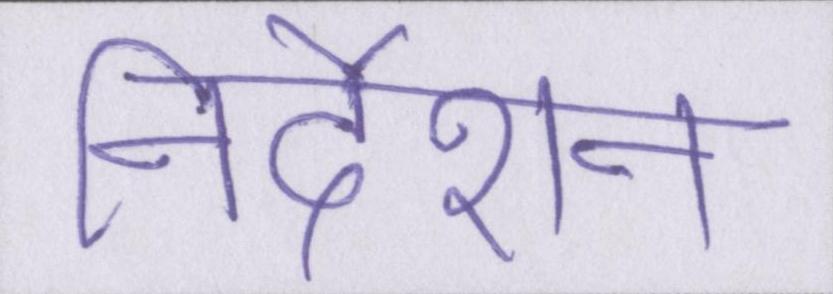 निर्देशन